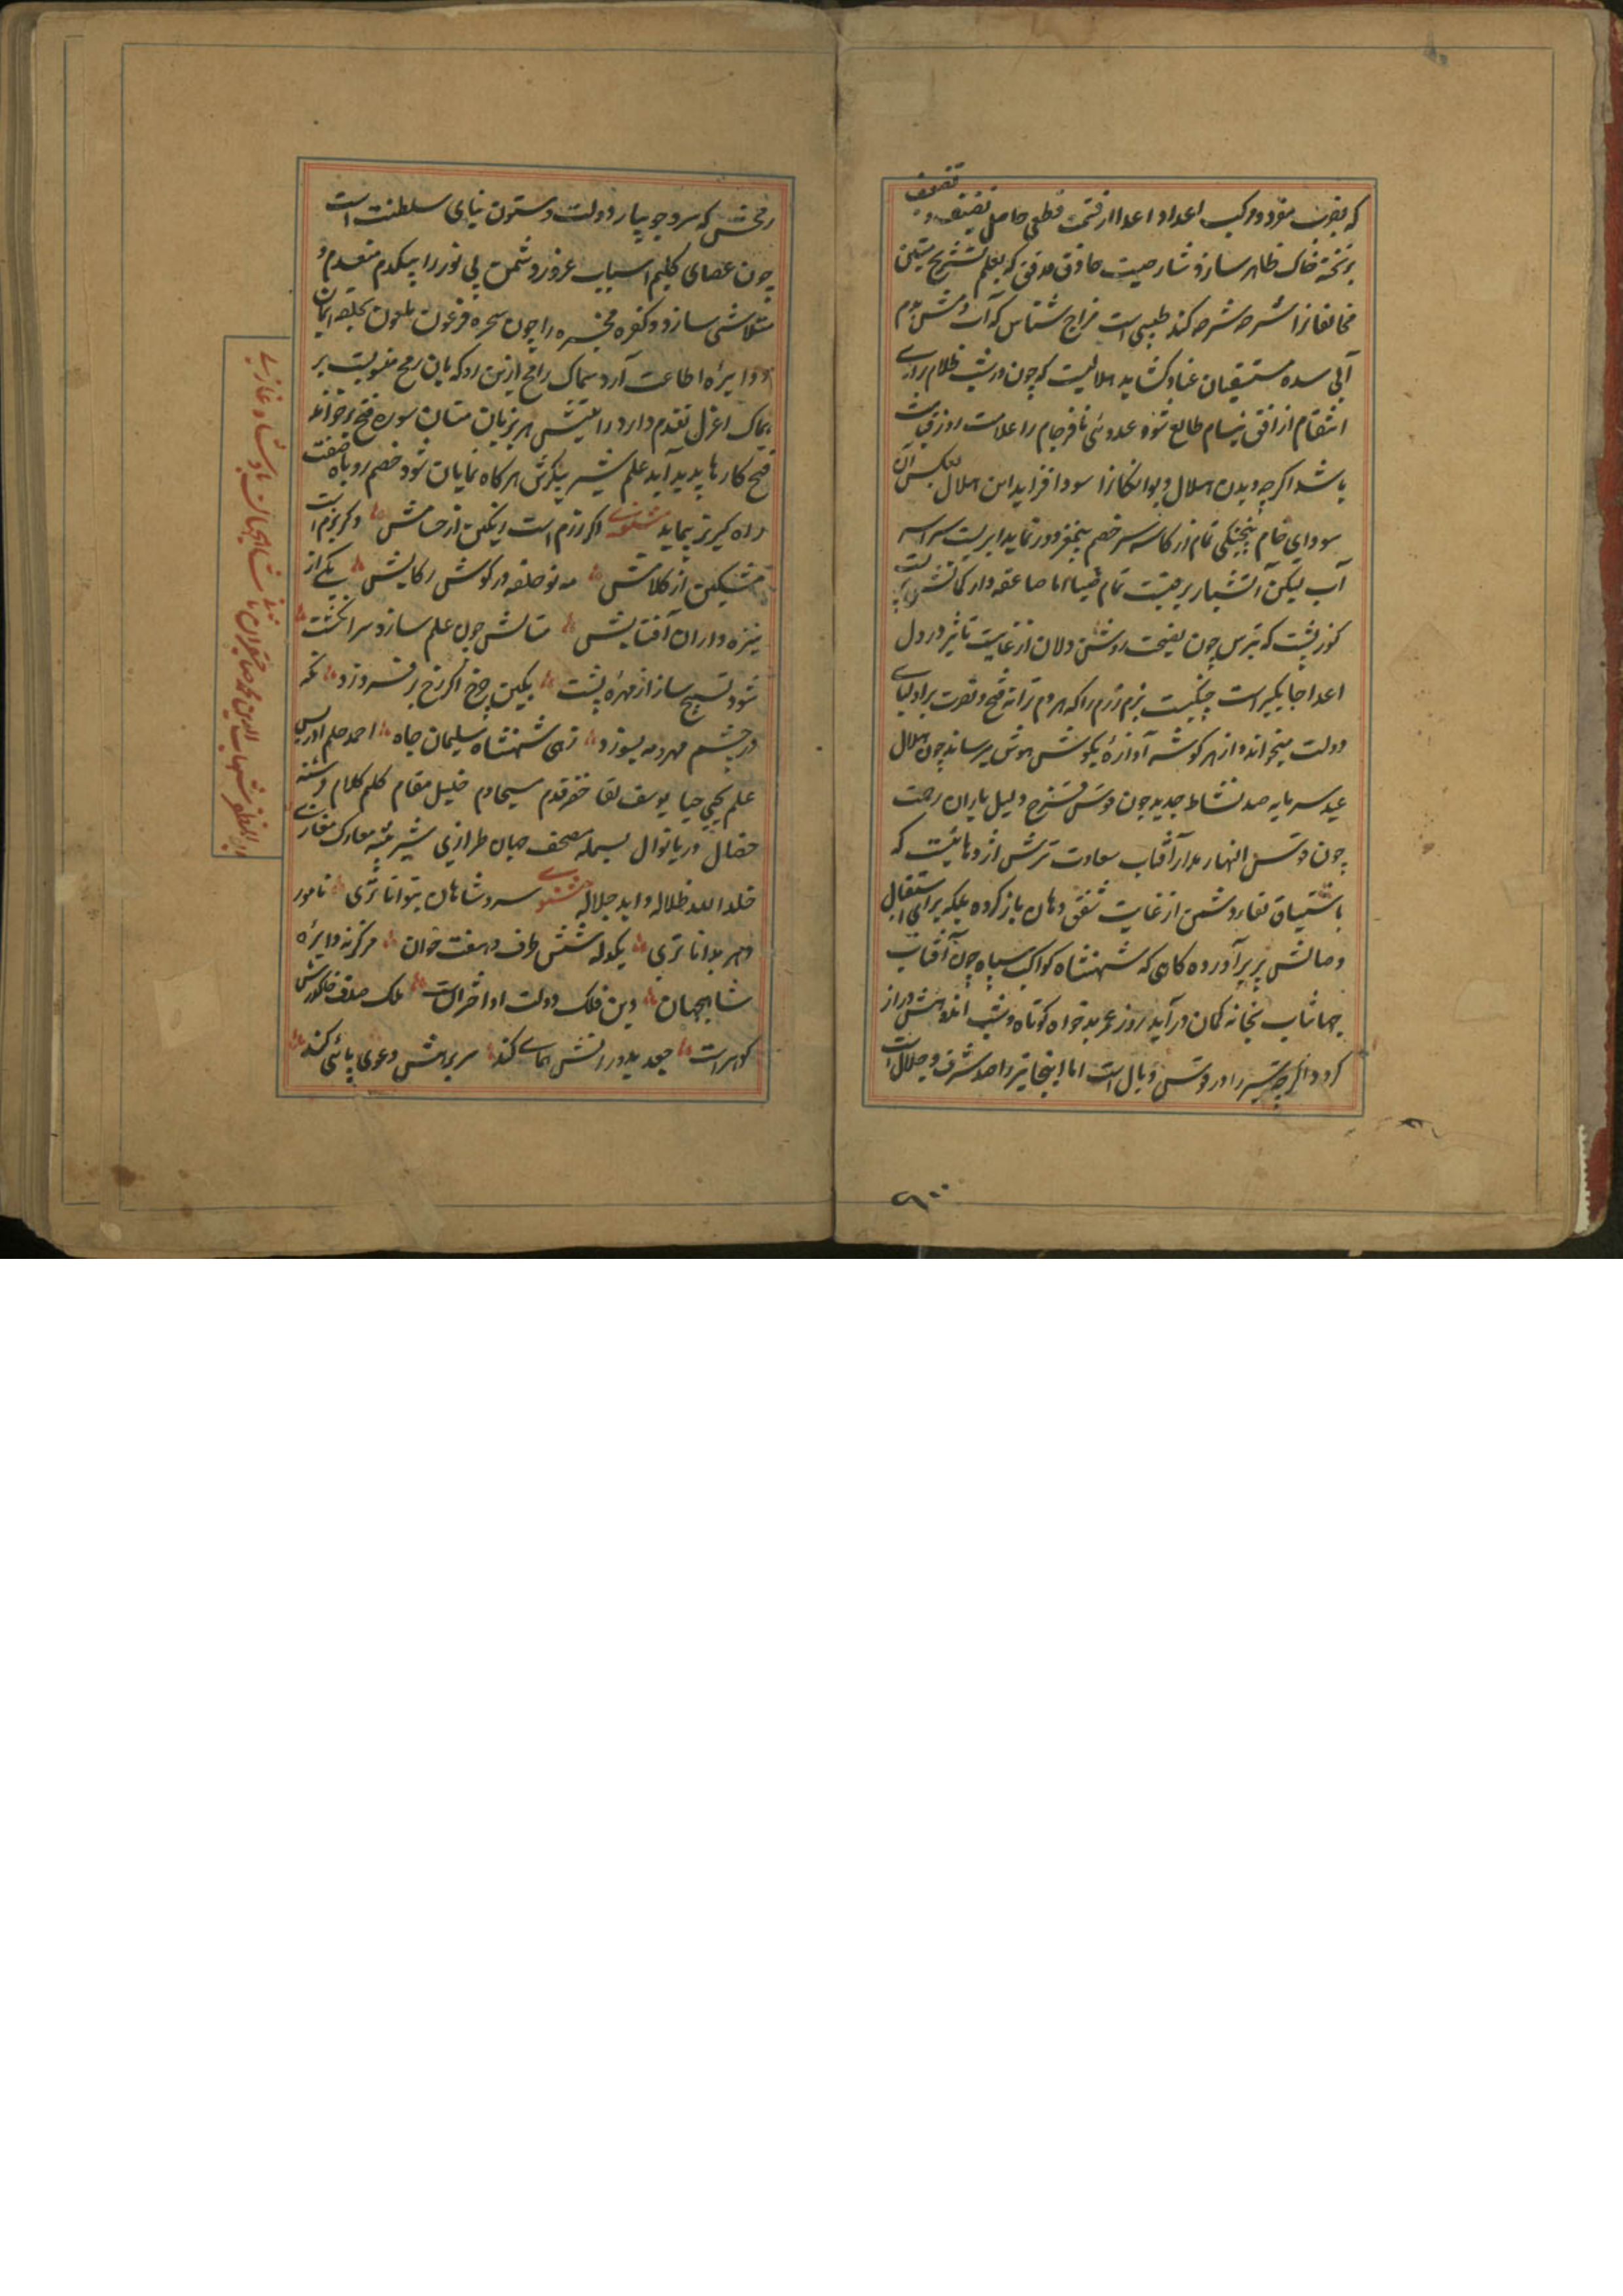 که بضرب مفرد و مرکب اعداد اعدا از قسمت قطعی حاصل تضعیف و
تنصیف
بر تخته خاک ظاهر سازد شارحیست حاذق مدقق که بعلم تشریح متین
مخالفانرا شرحه شرحه کند طبیبی است مزاج شناس که از آب و آتش دم
آبی سده مستسقیان عناد گشاید هلالیست که چون در شب ظلام برای
انتقام از افق نیام طالع شود عدوی نافرجام را علامت روز قیامت
باشد اگرچه دیدن هلال دیوانگانرا سودا فزاید این هلال بعکس آن
سودای خام به پختگی تمام از کاسه سر خصم بیمغز دور نماید ابریست سراسر
آب لیکن آتشبار برقیست تمام ضیا اما صاعقه وار کمانش
کوز پشت که تیرش چون نصیحت روشن دلان از غایت تاثیر در دل
اعدا جایگیر است چنگیست بزم رزم را که هر دم ترانه فتح و نصرت بر اولیای
دولت میخواند و از هر گوشه آوازه بگوش هوش میرساند چون هلال
عید سرمایه صد نشاط جدید چون قوس قزح دلیل باران رحمت
چون قوس النهار مدار آفتاب سعادت ترکش اژدهائیست که
باشتیاق لقاء دشمن از غایت شفقت دهان باز کرده بلکه برای استقبال
وصالش پر برآورده گاهی که شهنشاه کواکب سپاه چون آفتاب
جهانتاب بخانه کمان درآید روز عمر بدخواه کوتاه و شب اندوهش دراز
گردد اگرچه تیر را در قوس وبال است اما اینجا تیر را صد شرف و جلال است
رمحش که سرو جویبار دولت و ستون بنای سلطنت است
چون عصای کلیم اسباب غرور دشمن بی نور را بیکدم منعدم و
متلاشی سازد و کفره فجره را چون سحره فرعون ملعون بحلقه ایمان
و دایره اطاعت آرد سماک رامح ازین رو که باین رمح منسوبست بر
سماک اعزل تقدم دارد رایتش هر بزبان سنان سوره فتح برخواند
فتح کارها پدید آید علم شیر پیکرش هرگاه نمایان شود خصم روباه صفت
راه گریز پیماید مثنوی اگر رزم است اینک از حسامش وگر بزم است
مشکین از کلامش مه نو حلقه در گوش رکابش یکی از
نیزه داران آفتابش سنانش چون علم سازد سر انگشت
شود تسبیح ساز از مهره پشت بکین چرخ اگر رخ برفروزد نگه
در چشم مهر و مه بسوزد زهی شهنشاه سلیمان جاه احمد حلم ادریس
علم یحیی حیا یوسف لقا خضر قدم مسیحا دم خلیل مقام کلم کلام فرشته
خصال دریا نوال بسمله مصحف جهان طرازی شیر بیشه معارک مغازی
خلد الله ظلاله و ابد جلاله مثنوی سرور شاهان بتوانا تری نامور
دهر بدانا تری یکدله شش طرف و هفت خوان مرکز نه دایره
شاهجهان دین فلک دولت او اختر است ملک صدف خاک درش
گوهر است جغد بدورانش همای کند سر برهش دعوی پائی کند
ابوالمظفر شهاب الدین محمد صاحبقران ثانی شاهجهان بادشاه غازی